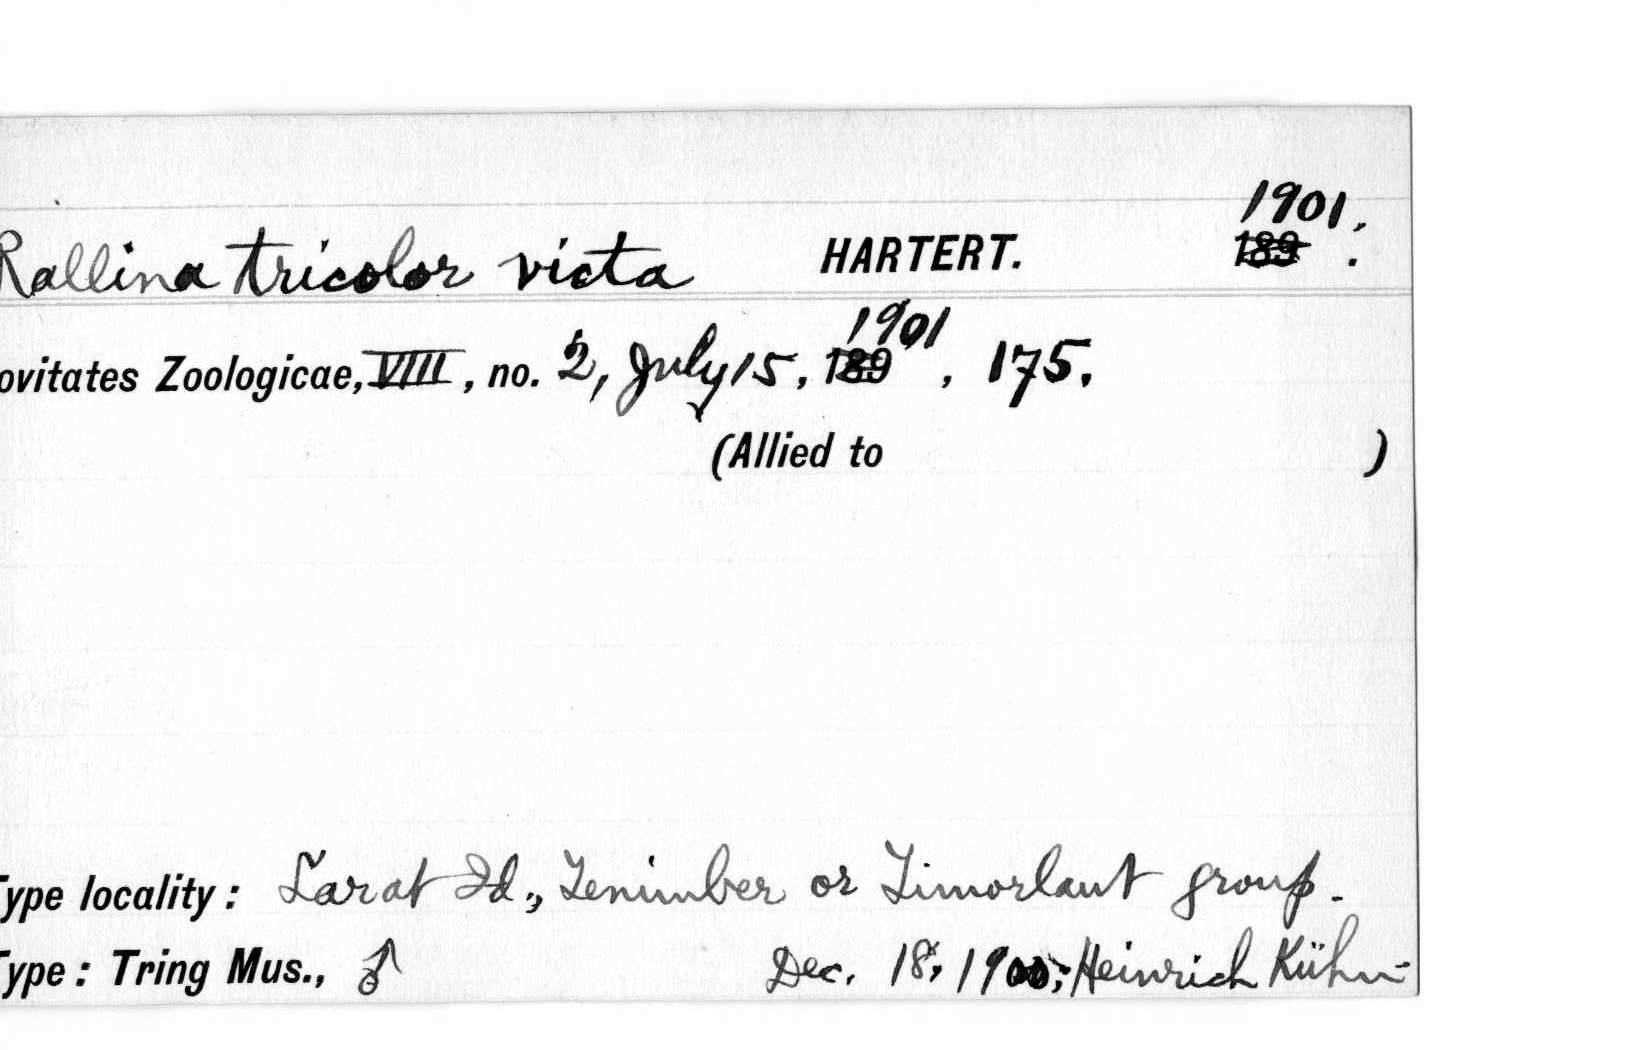 Rallina tricolor victa HARTERT. 1901. 189 .
ovitates Zoologicae, VIII, no. 2, July 15, 1901 189 , 175.
(Allied to )
Type locality: Larat Id., Tenimber or Timorlaut group.
Type: Tring Mus., ♂ Dec. 18, 1900; Heinrich Kühn